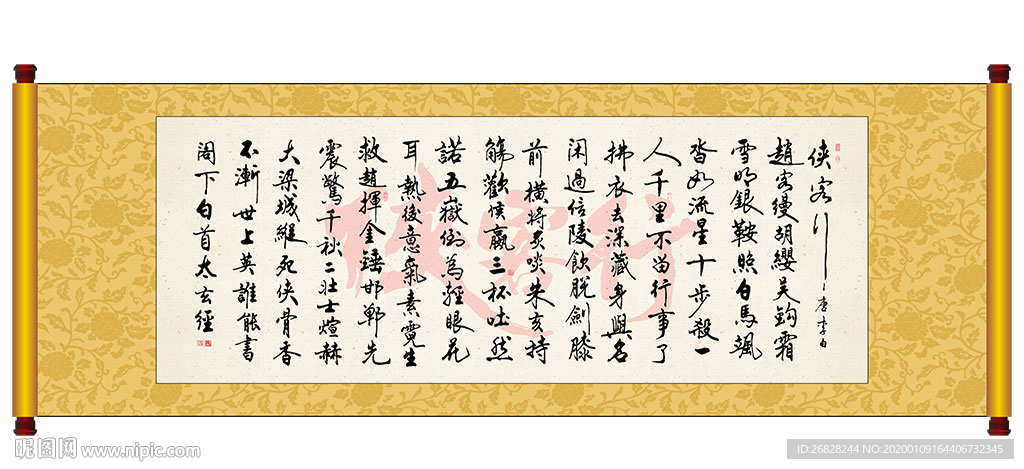 俠客行 唐李白
趙客縵胡纓吳鈎霜
雪明銀鞍照白馬颯
沓如流星十步殺一
人千里不留行事了
拂衣去深藏身與名
閑過信陵飲脫劍膝
前橫將炙啖朱亥持
觴勸侯嬴三杯吐然
諾五嶽倒為輕眼花
耳熱後意氣素霓生
救趙揮金錘邯鄲先
震驚千秋二壯士煊赫
大梁城縱死俠骨香
不漸世上英誰能書
閣下白首太玄經
俠客行
昵图网 www.nipic.com
ID:26828244 NO:20200109164406732345